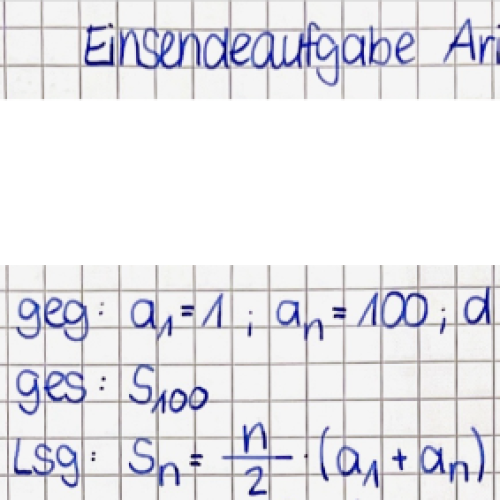 Einsendeaufgabe Ari
geg: a₁ = 1 ; aₙ = 100 ; d
ges: S₁₀₀
Lsg: Sₙ = n/2 · (a₁ + aₙ)